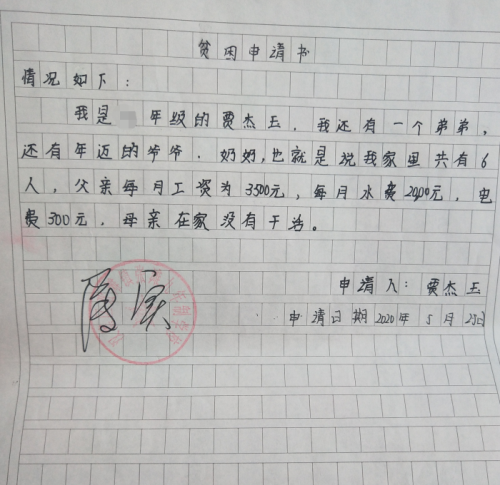 贫困申请书
情况如下:
我是 年级的贾杰玉,我还有一个弟弟,
还有年迈的爷爷.奶奶,也就是说我家里共有6
人,父亲每月工资为3500元,每月水费200元,电
费300元,母亲在家没有干活。
申请人:贾杰玉
申请日期2020年5月25日
属实